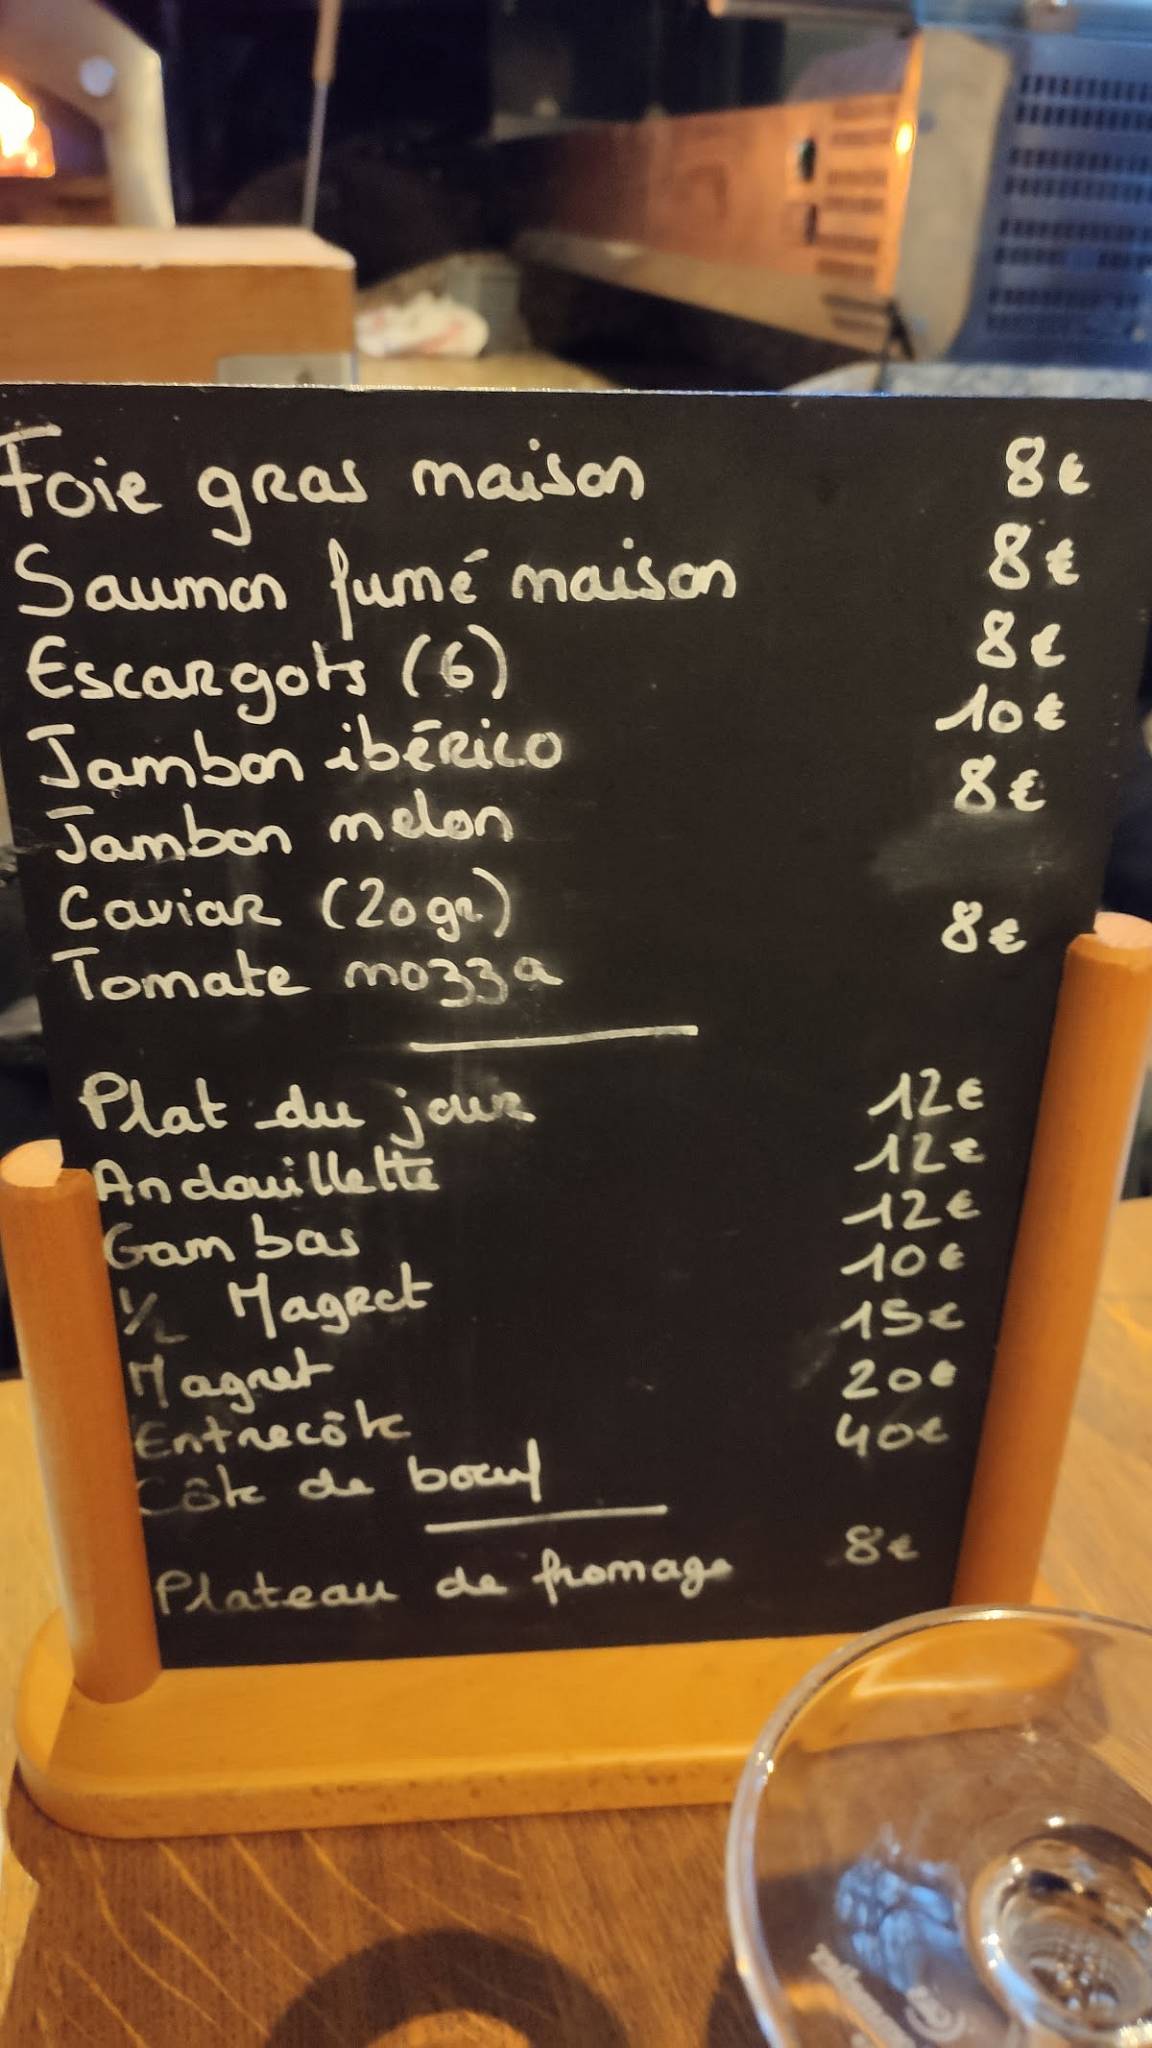 Foie gras maison 8€
Saumon fumé maison 8€
Escargots (6) 8€
Jambon ibérico 10€
Jambon melon 8€
Caviar (20gr)
Tomate mozza 8€
Plat du jour 12€
Andouillette 12€
Gambas 12€
1/2 Magret 10€
Magret 15€
Entrecôte 20€
Côte de bœuf 40€
Plateau de fromage 8€